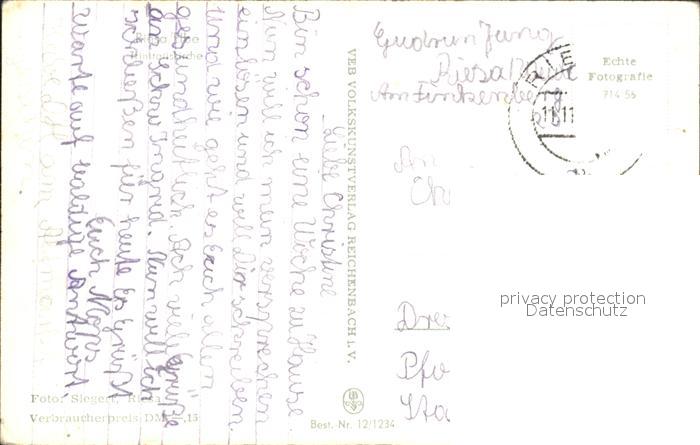 Liebe Christine
Bin schon eine Woche zu Hause
Nun will ich mein versprechen
einlösen und will Dir schreiben.
Und wie geht es Euch allen
gesundheitlich. Ach viele Grüße
an schon Ingrid. Nun will ich
schließen für heute Es Grüßt
Euch
Warte auf baldige Antwort
Riesa
Foto: Siegert, Riesa
Verbraucherpreis DM -,15
VEB VOLKSKUNSTVERLAG REICHENBACH i. V.
Best.-Nr. 12/1234
Gudrun Jung
Riesa
Am Finkenberg
Echte
Fotografie
714 55
RIE
11.11
An
Ch
Dre
Pfo
Sta
privacy protection
Datenschutz